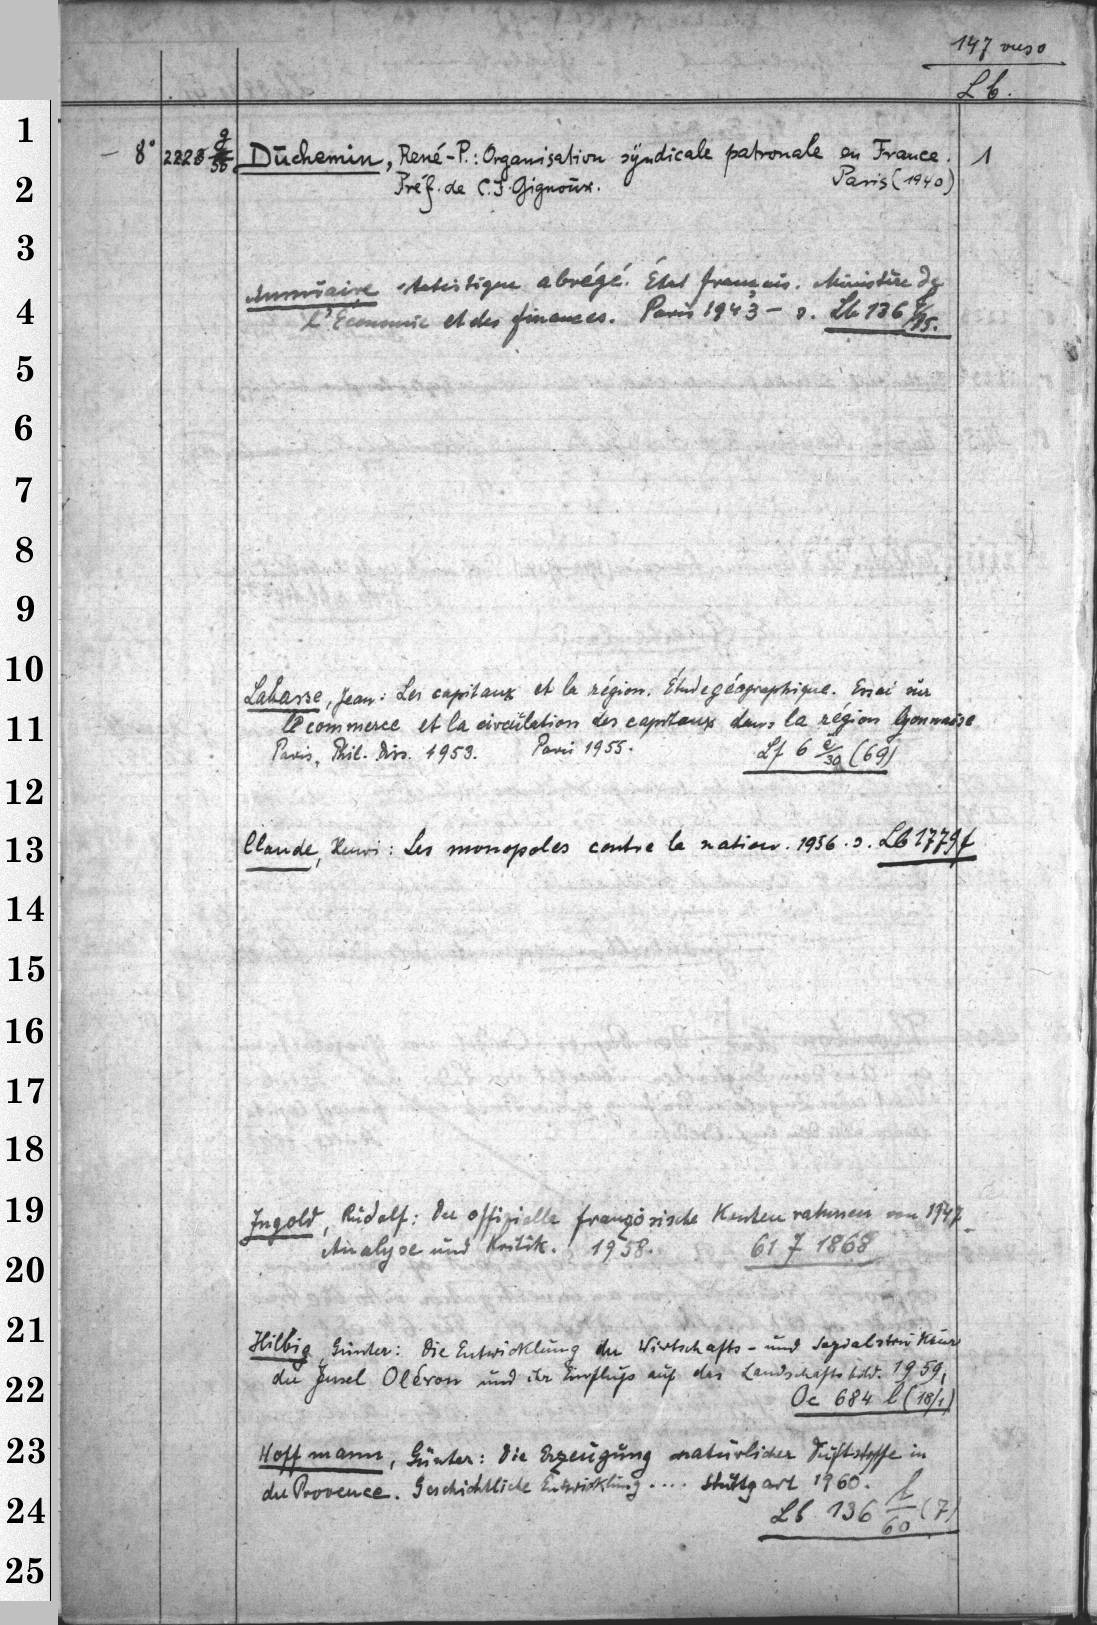 147 verso
Lb.
– 8° 2223 g/50 Duchemin, René-P.: Organisation syndicale patronale en France. 1
Préf. de C. J. Gignoux. Paris (1940)
Annuaire statistique abrégé. État français. Ministère de
l'Économie et des finances. Paris 1943 – s. Lb 136
Labasse, Jean: Les capitaux et la région. Étude géographique. Essai sur
le commerce et la circulation des capitaux dans la région lyonnaise
Paris, Phil. Diss. 1953. Paris 1955. Lf 6 e/30 (69)
Claude, Henri: Les monopoles contre la nation. 1956. s. Lb 1779f
Ingold, Rudolf: Der offizielle französische Kontenrahmen von 1947
Analyse und Kritik. 1958. 61 7 1868
Hilbig, Günter: Die Entwicklung der Wirtschafts- und Sozialstruktur
der Insel Oléron und ihr Einfluß auf das Landschaftsbild. 1959,
Oc 684 l (18/1)
Hoffmann, Günter: Die Erzeugung natürlicher Duftstoffe in
der Provence. Geschichtliche Entwicklung .... Stuttgart 1960.
Lb 136 l/60 (7)
1
2
3
4
5
6
7
8
9
10
11
12
13
14
15
16
17
18
19
20
21
22
23
24
25